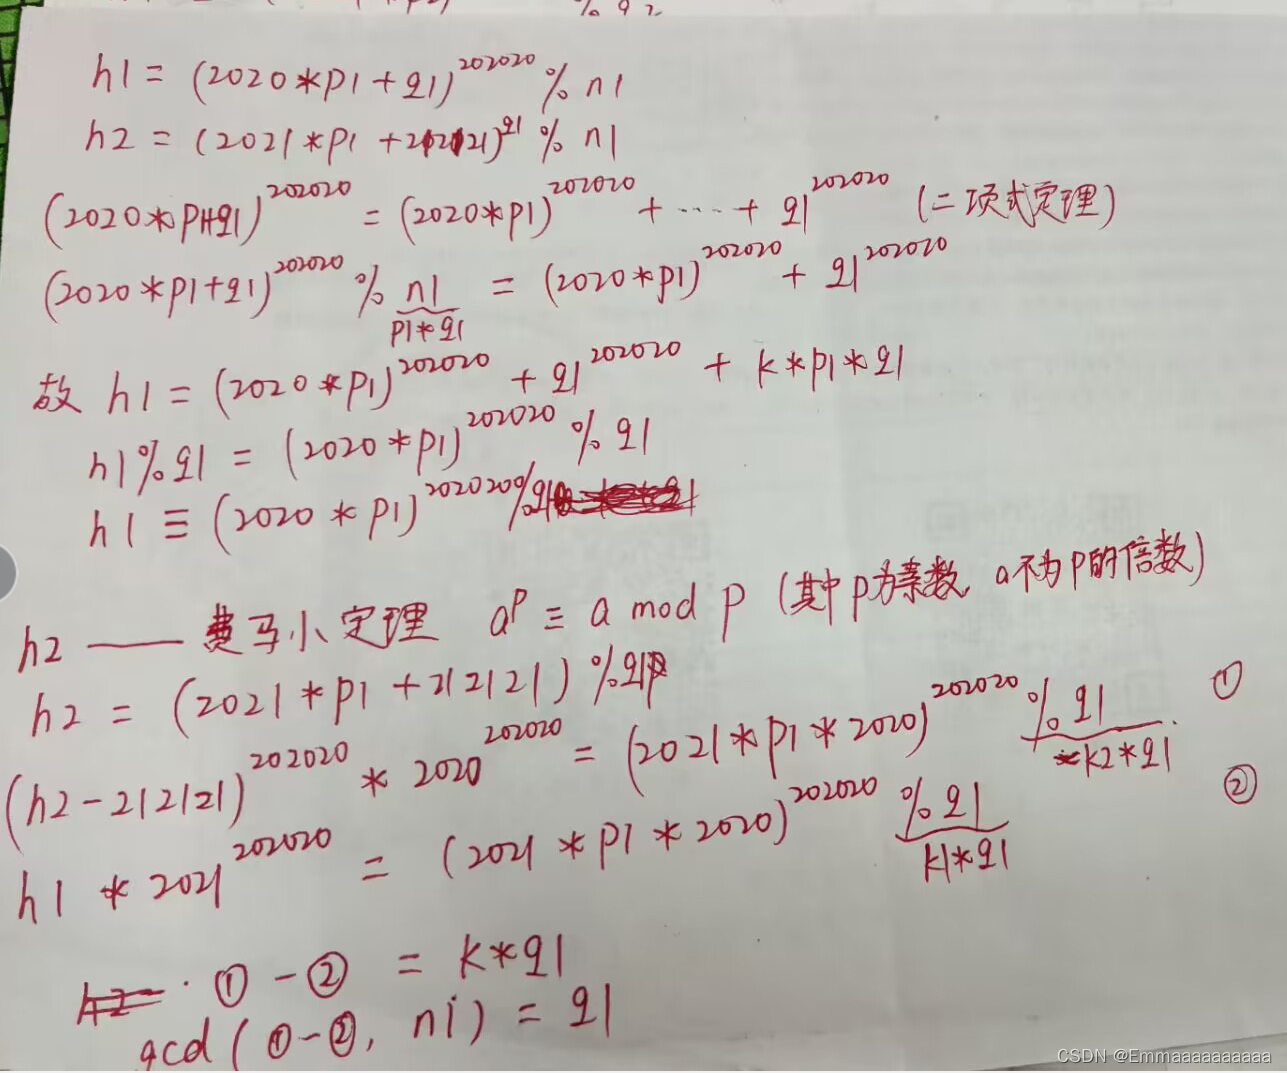 h1 = (2020*p1+q1)^202020 % n1
h2 = (2021*p1+212121)^q1 % n1
(2020*p1+q1)^202020 = (2020*p1)^202020 + ... + q1^202020 (二项式定理)
(2020*p1+q1)^202020 % n1 = (2020*p1)^202020 + q1^202020
p1*q1
故 h1 = (2020*p1)^202020 + q1^202020 + k*p1*q1
h1%q1 = (2020*p1)^202020 % q1
h1 ≡ (2020*p1)^202020 %q1
h2 —— 费马小定理 a^p ≡ a mod p (其中p为素数 a不为p的倍数)
h2 = (2021*p1+212121) %q1
(h2-212121)^202020 * 2020^202020 = (2021*p1*2020)^202020 %q1 ①
k2*q1
h1 * 2021^202020 = (2021*p1*2020)^202020 %q1 ②
k1*q1
①-② = k*q1
gcd(①-②, n1) = q1
CSDN @Emmaaaaaaaaaa